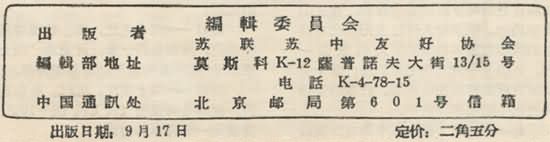 編輯委員会
出版者 苏联苏中友好协会
編輯部地址 莫斯科K-12薩普諾夫大街13/15号
电話 K-4-78-15
中国通訊处 北京邮局第601号信箱
出版日期：9月17日 定价：二角五分